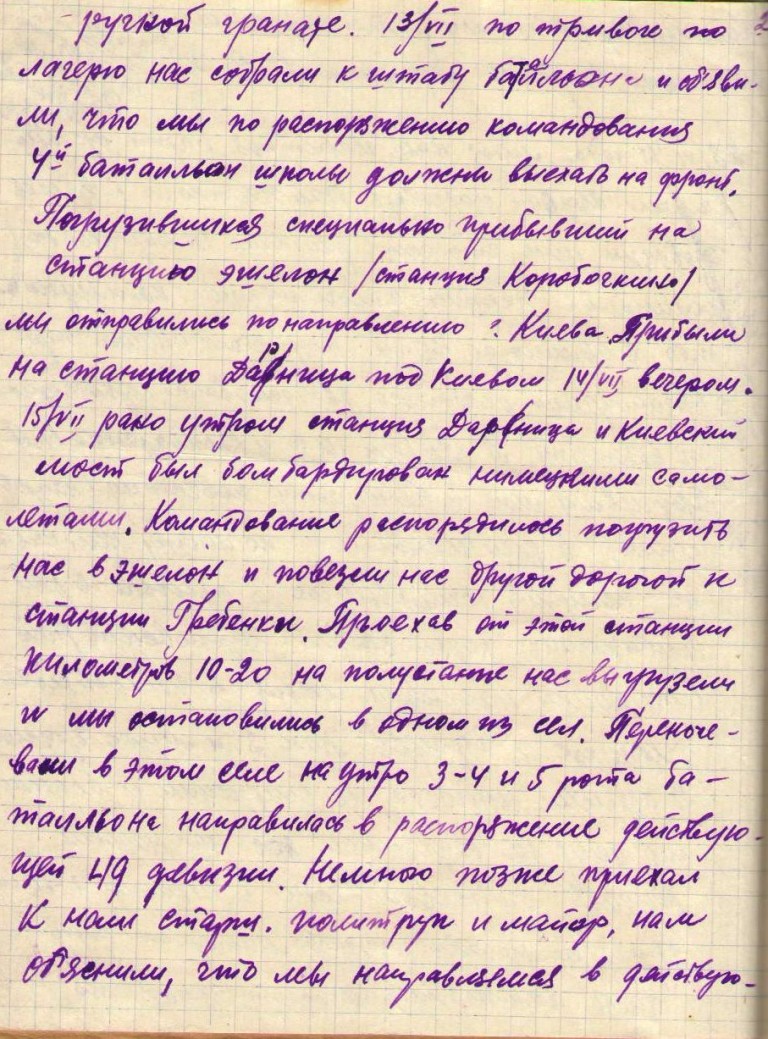 ручной гранате. 13/VII по тривоге по 2
лагерю нас собрали к штабу батальона и об'яви-
ли, что мы по распоряжению командования
4й баталльон школы должны выехать на фронт.
Погрузившихся специально прибывший на
станцию эшелон /станция Коробочкино/
мы отправились по направлению г. Киева. Прибыли
на станцию Дарница под Киевом 14/VII вечером.
15/VII рано утром станция Дарница и Киевский
мост был бомбардирован нимецкими само-
летами. Командование распорядилось погрузить
нас в эшелон и повезли нас другой дорогой к
станции Гребенки. Проехав от этой станции
километров 10-20 на полустанке нас выгрузели
и мы остановились в одном из сел. Переноче-
вали в этом селе на утро 3-4 и 5 рота ба-
талльона направилась в распоряжение действую-
щей 49 девизии. Немного позже приехал
к нам старш. политрук и майор, нам
об'яснили, что мы направляемся в действую-